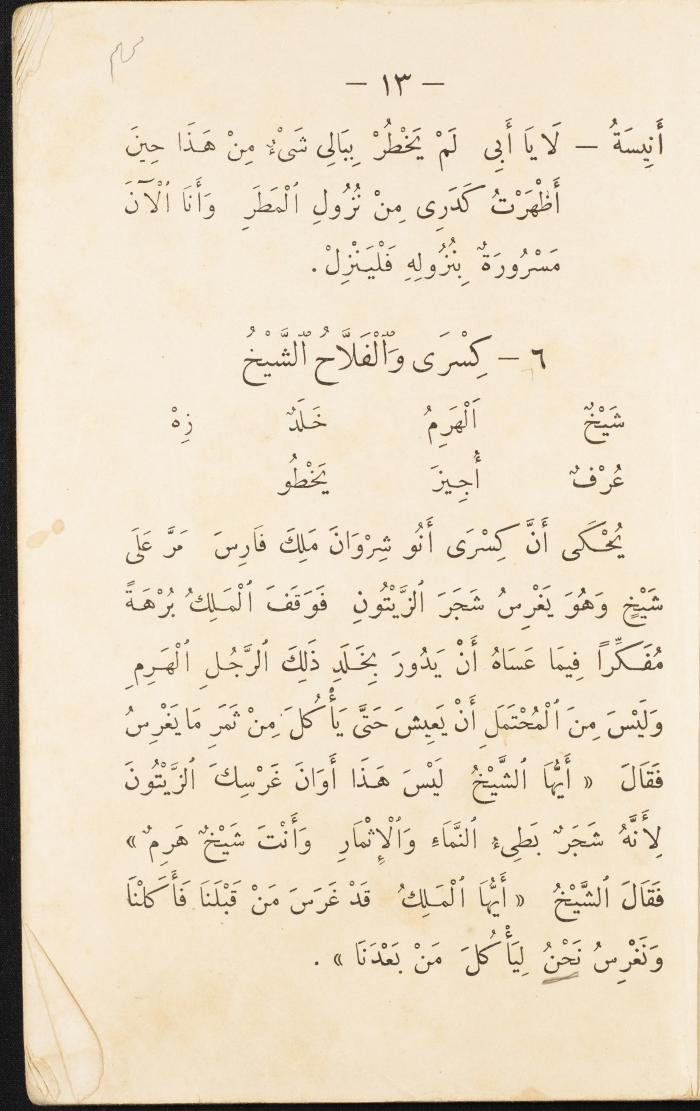 — ١٣ —
أَنِيسَةُ — لَا يَا أَبِى لَمْ يَخْطُرْ بِبَالِى شَىْءٌ مِنْ هَذَا حِينَ
أَظْهَرْتُ كَدَرِى مِنْ نُزُولِ ٱلْمَطَرِ وَأَنَا ٱلْآنَ
مَسْرُورَةٌ بِنُزُولِهِ فَلْيَنْزِلْ .
٦ — كِسْرَى وَٱلْفَلَّاحُ ٱلشَّيْخُ
شَيْخٌ اَلْهَرِمُ خَلَدٌ زِهْ
عُرْفٌ أُجِيزَ يَخْطُو
يُحْكَى أَنَّ كِسْرَى أَنُو شِرْوَانَ مَلِكَ فَارِسَ مَرَّ عَلَى
شَيْخٍ وَهُوَ يَغْرِسُ شَجَرَ ٱلزَّيْتُونِ فَوَقَفَ ٱلْمَلِكُ بُرْهَةً
مُفَكِّرًا فِيمَا عَسَاهُ أَنْ يَدُورَ بِخَلَدِ ذَلِكَ ٱلرَّجُلِ ٱلْهَرِمِ
وَلَيْسَ مِنَ ٱلْمُحْتَمَلِ أَنْ يَعِيشَ حَتَّى يَأْكُلَ مِنْ ثَمَرِ مَا يَغْرِسُ
فَقَالَ « أَيُّهَا ٱلشَّيْخُ لَيْسَ هَذَا أَوَانَ غَرْسِكَ ٱلزَّيْتُونَ
لِأَنَّهُ شَجَرٌ بَطِىءُ ٱلنَّمَاءِ وَٱلْإِثْمَارِ وَأَنْتَ شَيْخٌ هَرِمٌ »
فَقَالَ ٱلشَّيْخُ « أَيُّهَا ٱلْمَلِكُ قَدْ غَرَسَ مَنْ قَبْلَنَا فَأَكَلْنَا
وَنَغْرِسُ نَحْنُ لِيَأْكُلَ مَنْ بَعْدَنَا » .